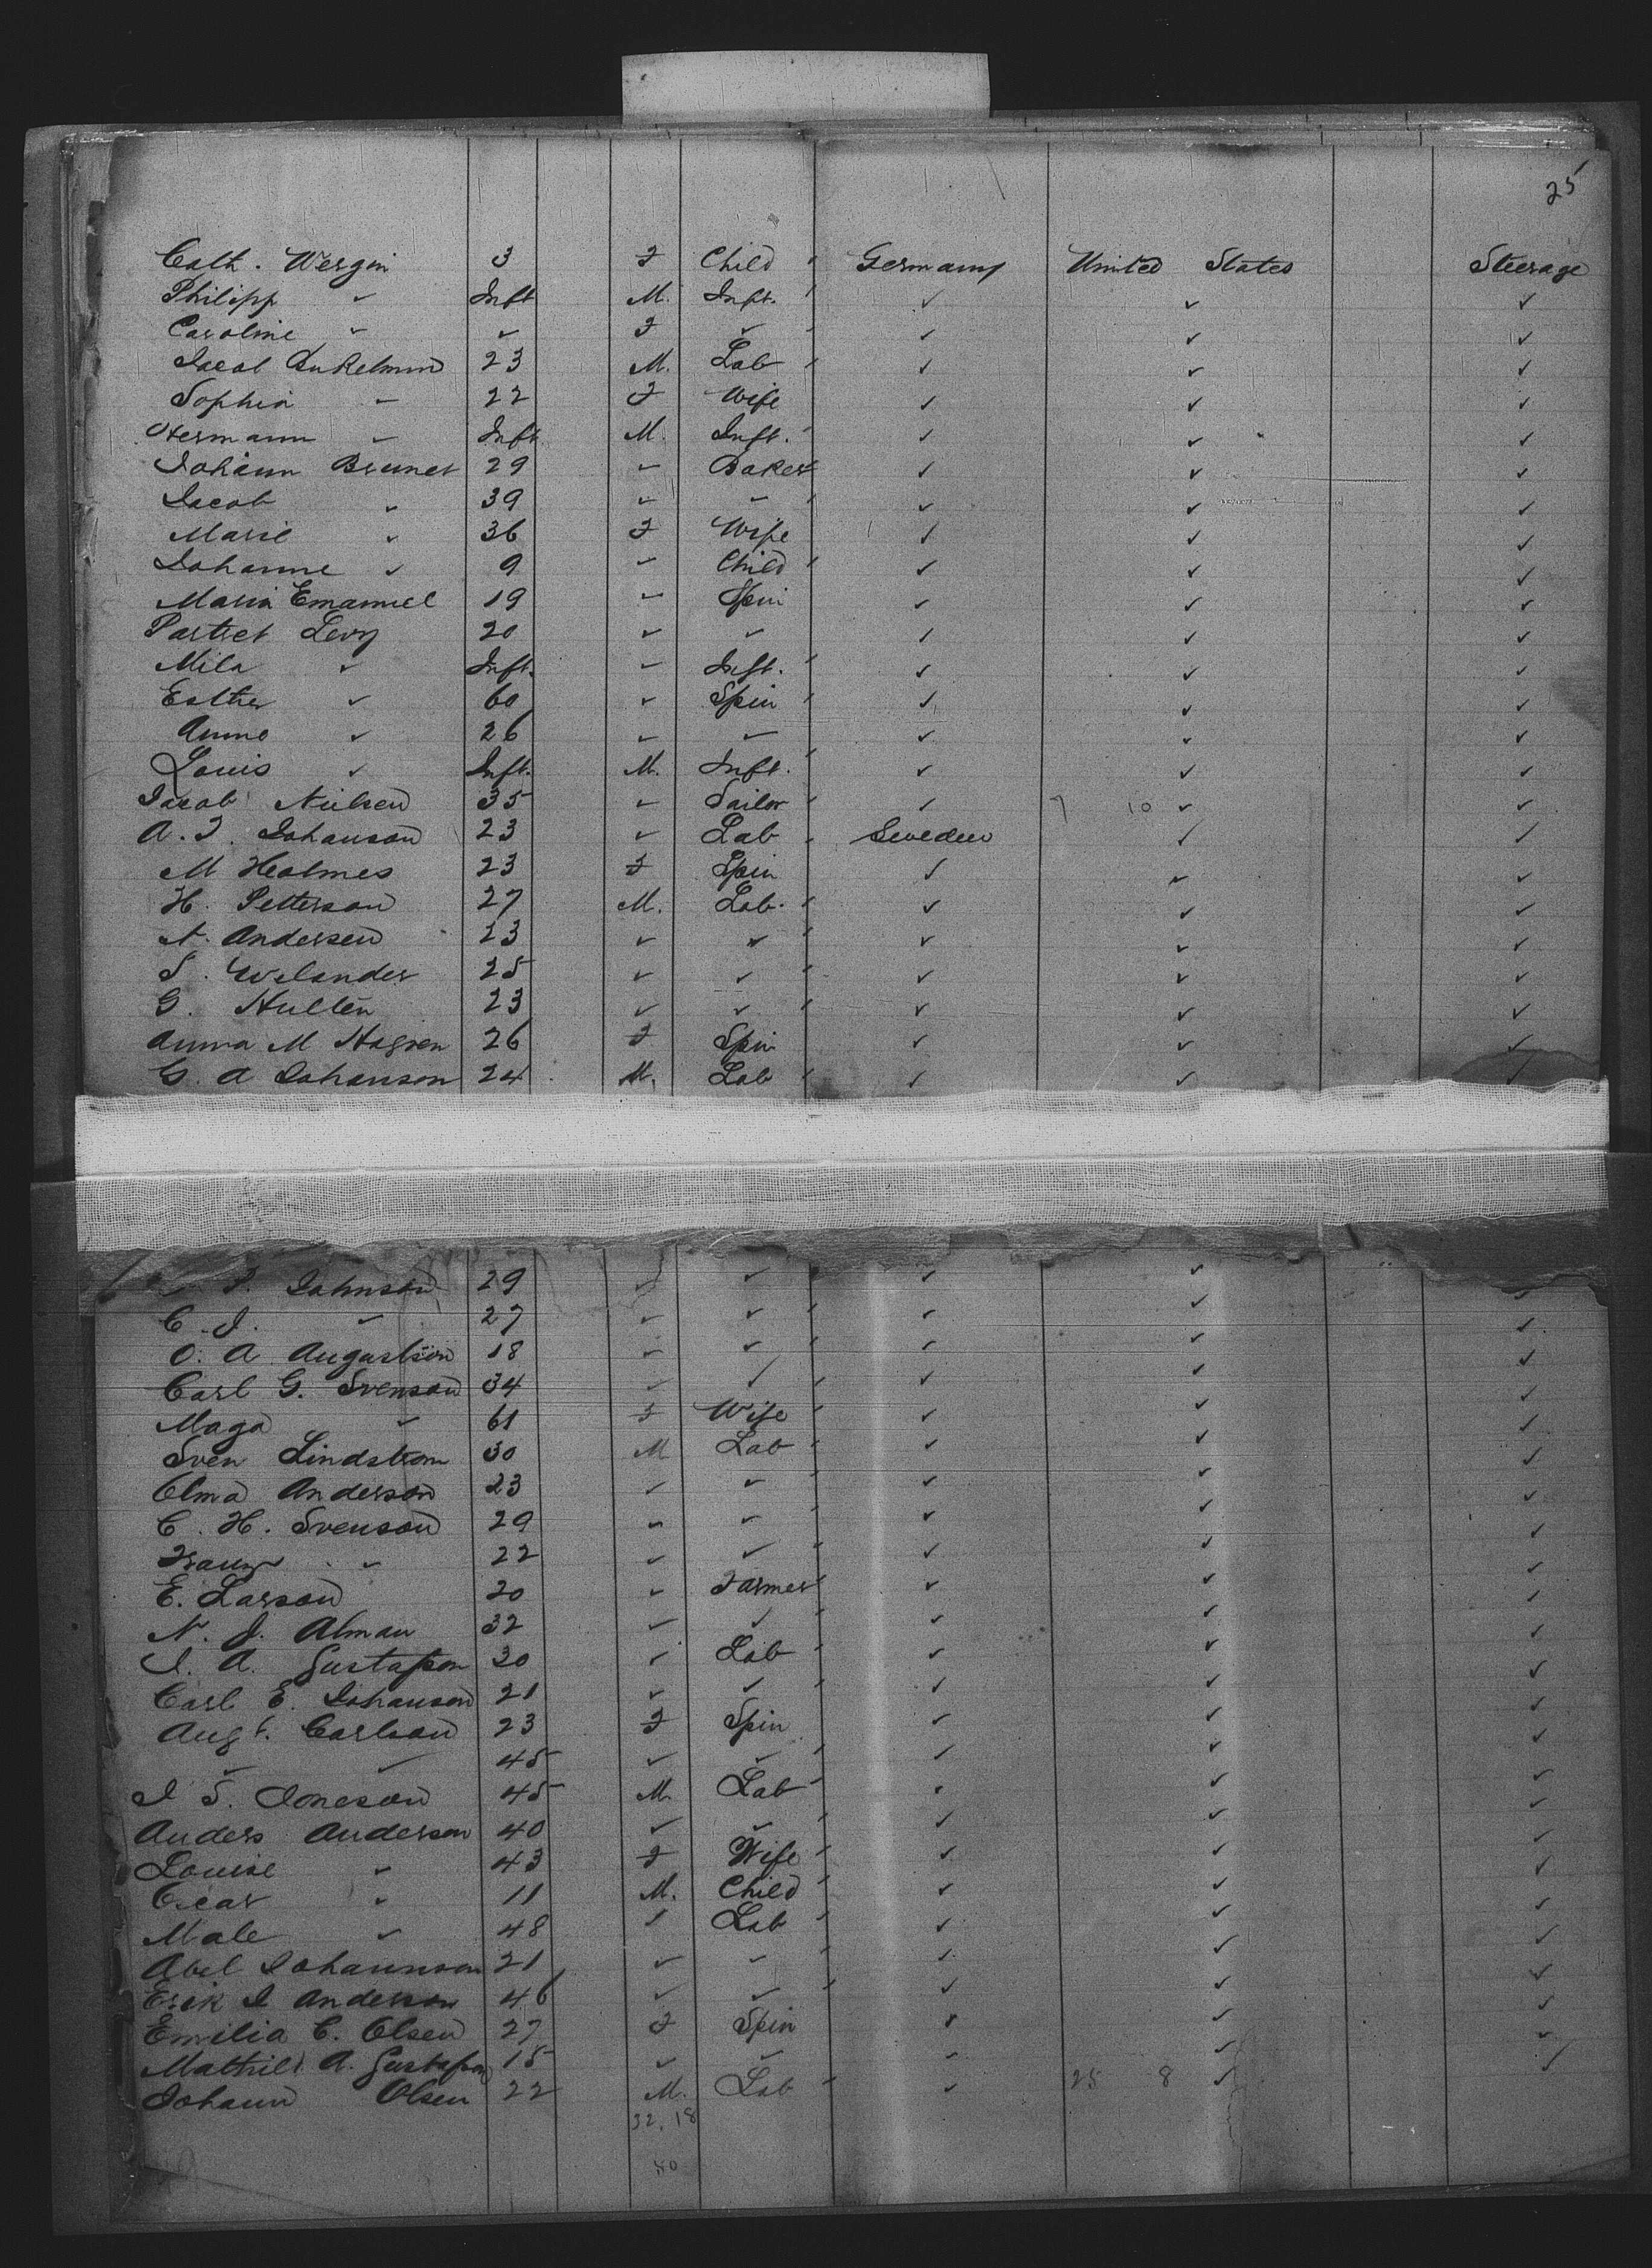 25
Cath. Wergin 3 F Child " Germany United States Steerage
Philipp " Inft M. Inft. " " " "
Caroline " " F " " " "
Jacob 23 M. Lab " " " "
Sophia " 22 F Wife " " "
Hermann " Inft. M. Inft. " " "
Johann Bruner 29 " Baker " " "
Jacob " 39 " " " " "
Marie " 36 F Wife " " "
Johanne " 9 " Child " " "
Maria Emanuel 19 " Spin " " "
Levy 20 " " " " "
Mila " Inft. " Inft. " " "
Esther " 60 " Spin " " "
Anna " 26 " " " " "
Louis " Inft. M. Inft. " " "
Jacob Nielsen 35 " Sailor " 7 10 " "
A. F. Johanson 23 " Lab Sweden " "
M Holmes 23 F Spin " " "
H. Petterson 27 M. Lab. " " "
N. Andersen 23 " " " " "
S. Welander 25 " " " " "
G. Hullen 23 " " " " "
Anna M Hagren 26 F Spin " " "
G. A Johanson 24 M. Lab " " "
P. Johnson 29 " " " " "
C. J. " 27 " " " " "
O. A Augustson 18 " " " " "
Carl G. Svenson 34 " " " " "
Maga " 61 F Wife " " "
Sven Lindstrom 30 M Lab " " "
Olma Anderson 23 " " " " "
C. H. Svenson 29 " " " " "
Franz " 22 " " " " "
E. Larson 20 " Farmer " " "
N. J. Alman 32 " " " " "
J. A. Gustafson 30 " Lab " " "
Carl E. Johanson 21 " " " " "
Augt. Carlson 23 F Spin " " "
" " 45 " " " " "
J S. Joneson 45 M. Lab " " "
Anders Anderson 40 " " " " "
Louise " 43 F Wife " " "
Oscar " 11 M. Child " " "
Male " 48 " Lab " " "
Abel Johannson 21 " " " " "
Erik J Anderson 46 " " " " "
Emilia C. Olsen 27 F Spin " " "
Mathild A. Gustafson 18 " " " " "
Johann Olsen 22 M. Lab " 25 8 " "
32. 18
50